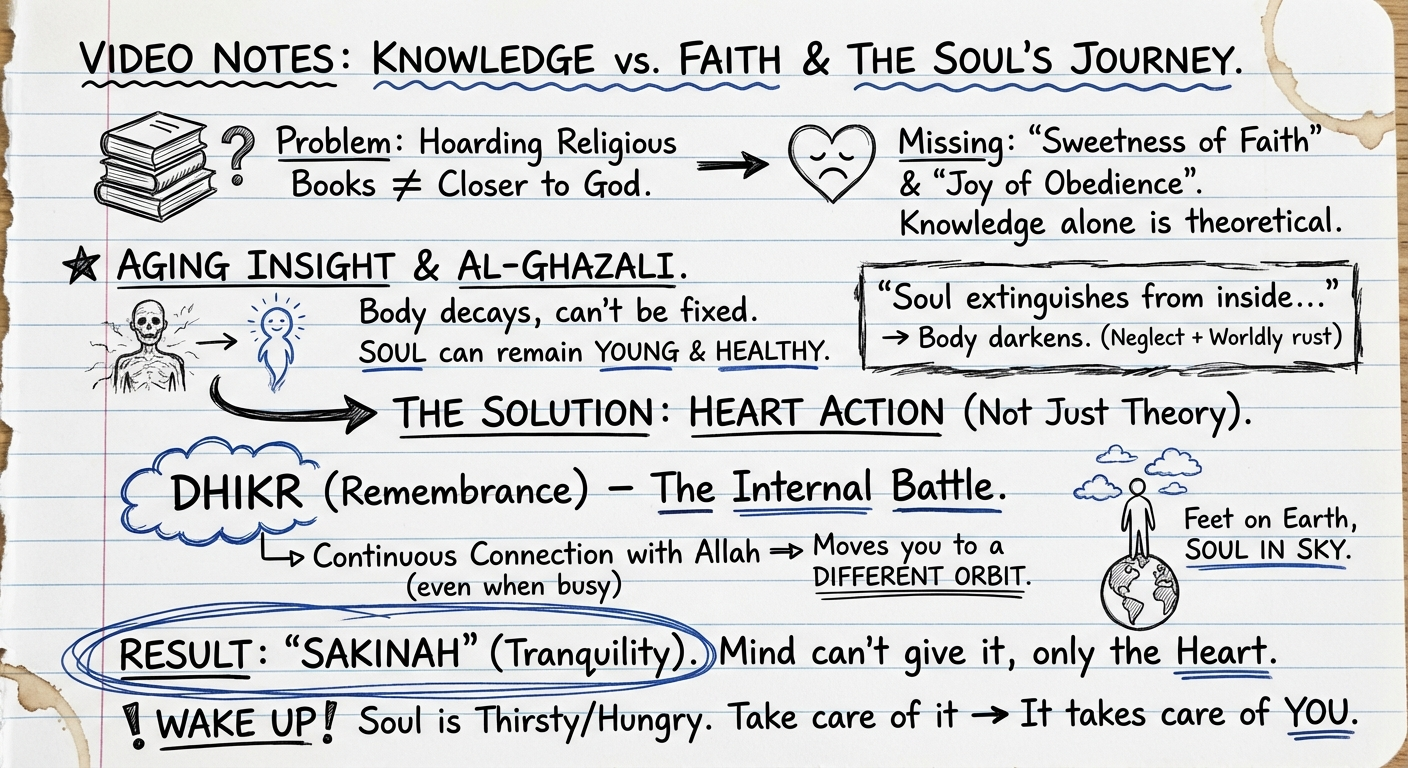 VIDEO NOTES: KNOWLEDGE vs. FAITH & THE SOUL'S JOURNEY.
? Problem: Hoarding Religious
Books ≠ Closer to God.
Missing: "Sweetness of Faith"
& "Joy of Obedience".
Knowledge alone is theoretical.
★ AGING INSIGHT & AL-GHAZALI.
Body decays, can't be fixed.
SOUL can remain YOUNG & HEALTHY.
"Soul extinguishes from inside..."
→ Body darkens. (Neglect + Worldly rust)
THE SOLUTION: HEART ACTION (Not Just Theory).
DHIKR (Remembrance) – The Internal Battle.
Continuous Connection with Allah ⇒ Moves you to a
(even when busy) DIFFERENT ORBIT.
Feet on Earth,
SOUL IN SKY.
RESULT: "SAKINAH" (Tranquility). Mind can't give it, only the Heart.
! WAKE UP! Soul is Thirsty/Hungry. Take care of it → It takes care of YOU.